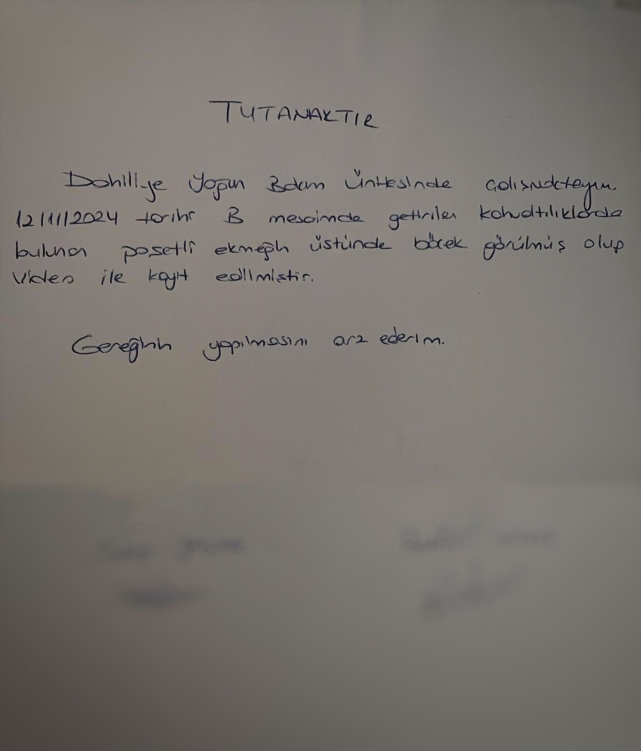 TUTANAKTIR
Dahiliye Yoğun Bakım Ünitesinde çalışmaktayım.
12/11/2024 tarihi B mesaimde getirilen kahvaltılıklarda
bulunan poşetli ekmeğin üstünde böcek görülmüş olup
video ile kayıt edilmiştir.
Gereğinin yapılmasını arz ederim.